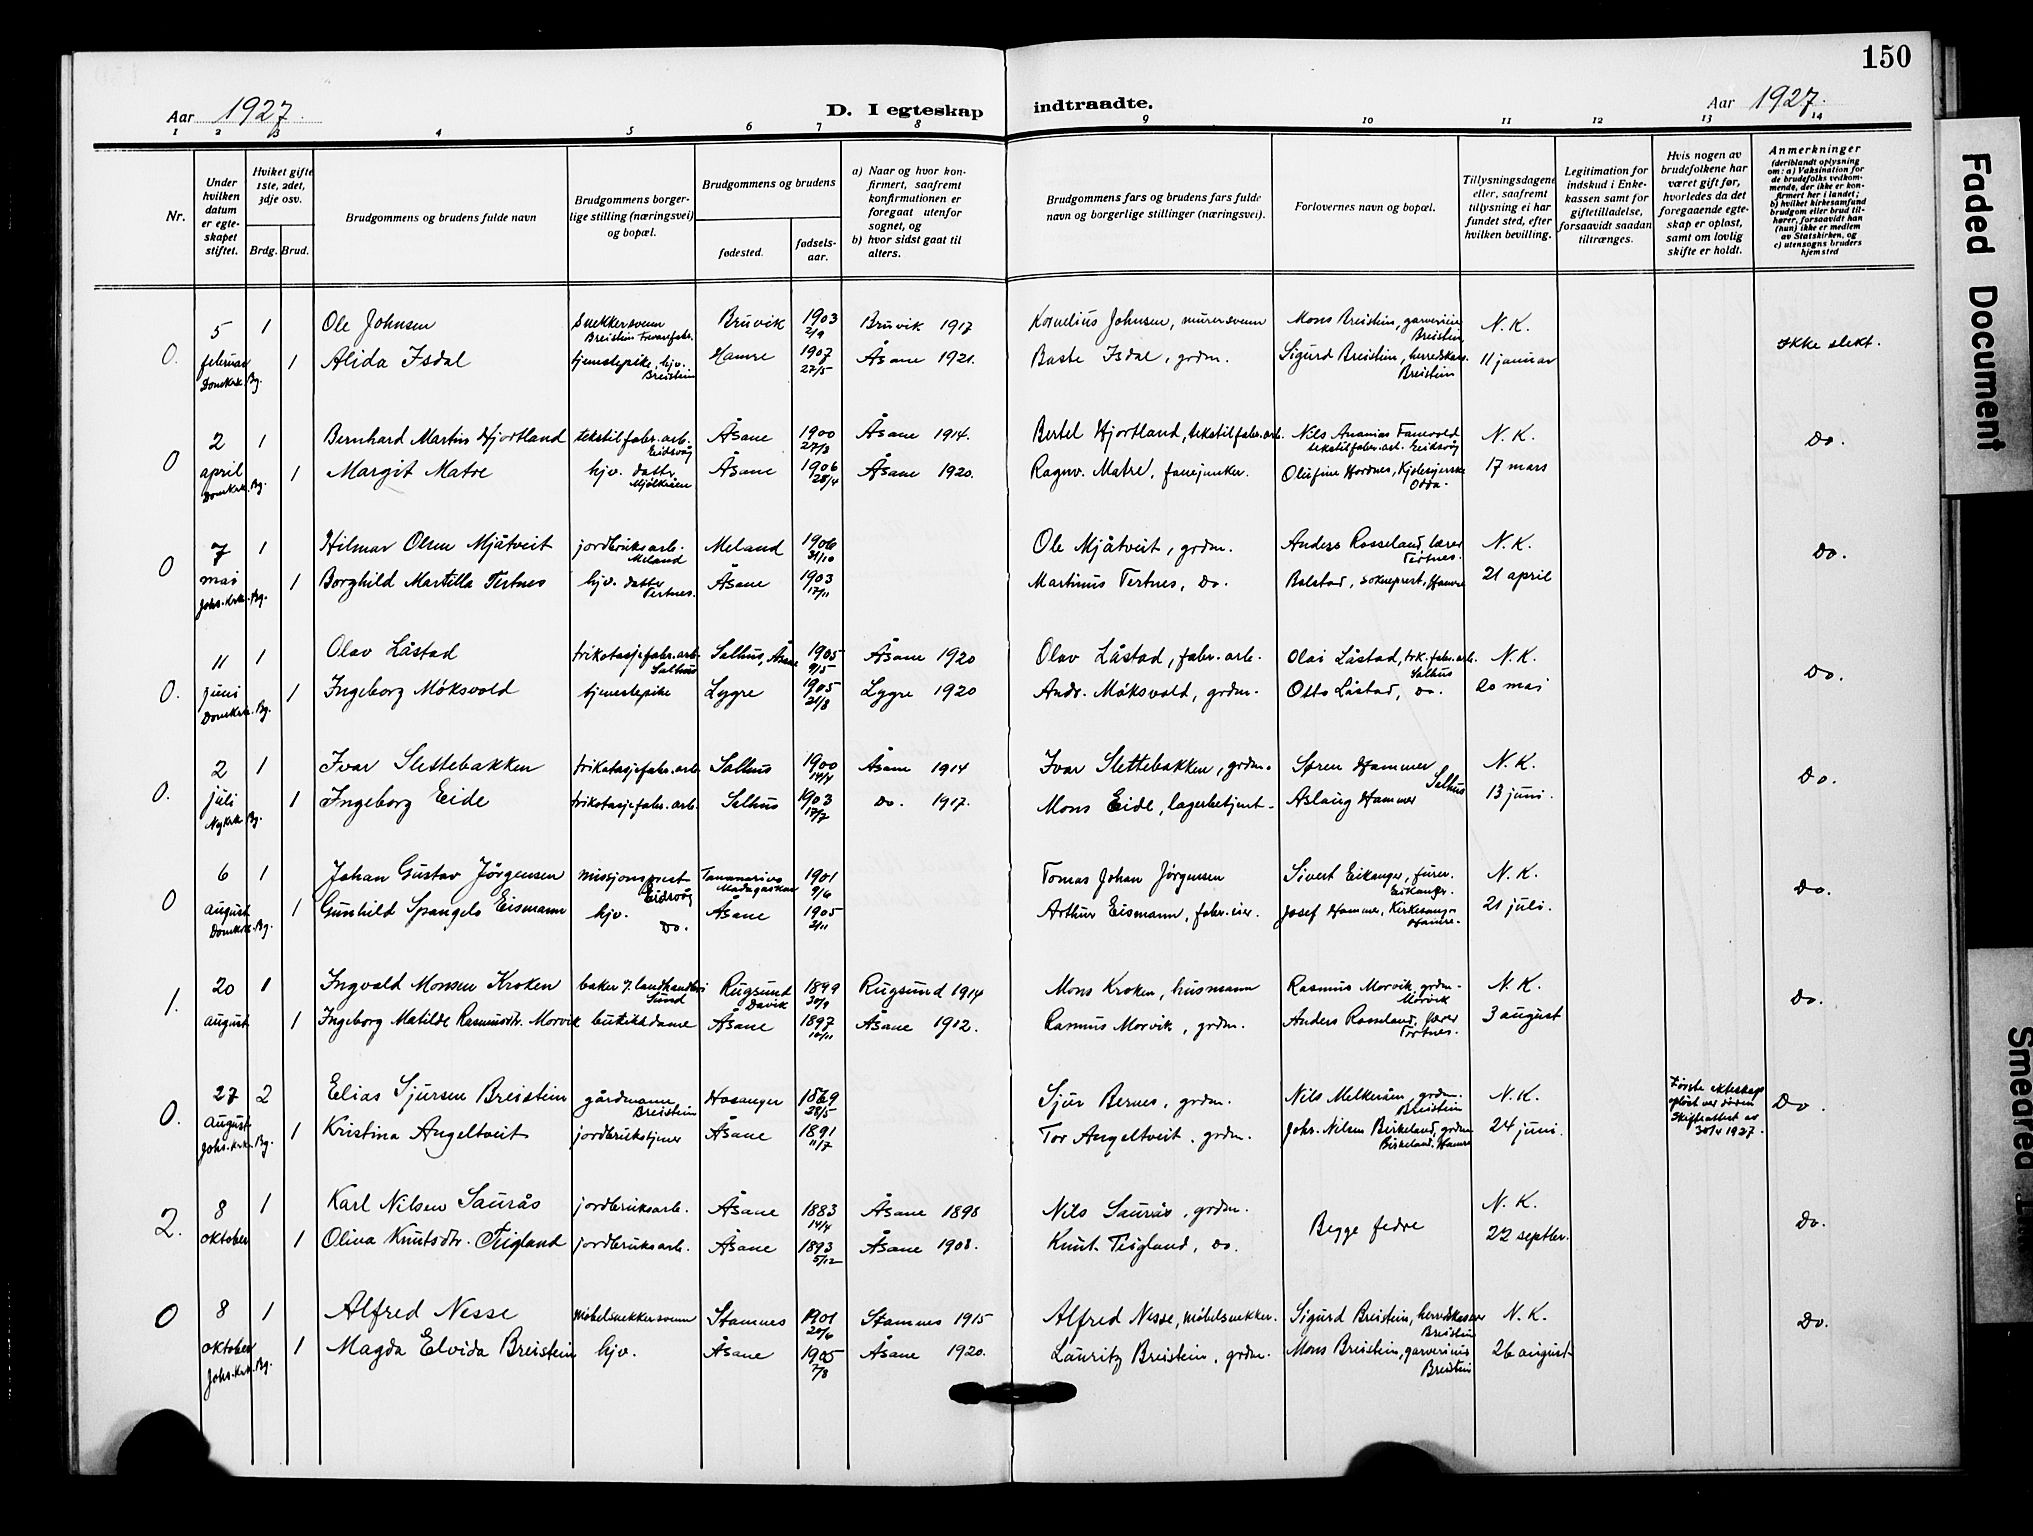 150
Aar 1927.
D. I egteskap indtraadte.
Aar 1927.
1 2 3 4 5 6 7 8 9 10 11 12 13 14
Nr.
Under hvilken datum er egteskapet stiftet.
Hviket gifte 1ste, 2det, 3dje osv.
Brdg. Brud.
Brudgommens og brudens fulde navn
Brudgommens borgerlige stilling (næringsvei) og bopæl.
Brudgommens og brudens
fødested.
fødsels-aar.
a) Naar og hvor konfirmert, saafremt konfirmationen er foregaat utenfor sognet, og
b) hvor sidst gaat til alters.
Brudgommens fars og brudens fars fulde navn og borgerlige stillinger (næringsvei).
Forlovernes navn og bopæl.
Tillysningsdagene eller, saafremt tillysning ei har fundet sted, efter hvilken bevilling.
Legitimation for indskud i Enkekassen samt for giftetilladelse, forsaavidt saadan tiltrænges.
Hvis nogen av brudefolkene har været gift før, hvorledes da det foregaaende egteskap er opløst, samt om lovlig skifte er holdt.
Anmerkninger
(deriblandt oplysning om: a) Vaksination for de brudefolks vedkommende, der ikke er konfirmert her i landet; b) hvilket kirkesamfund brudgom eller brud tilhører, forsaavidt han (hun) ikke er medlem av Statskirken, og c) utensogns bruders hjemsted
5 1 Ole Johnsen snekkersvenn Breistein Trevarefabr. Bruvik 1903 2/9 Bruvik 1917 Kornelius Johnsen, murersvenn Mons Breistein, garverieier Breistein N. K.
0. februar Domkrk. Bg. 1 Alida Isdal tjenestepike, hjv. Breistein Hamre 1907 27/5 Åsane 1921. Baste Isdal, grdm. Sigurd Breistein, herredskass. Breistein 11 januar Ikke slekt.
2 1 Bernhard Martin Hjortland tekstilfabr.arb. Eidsvåg Åsane 1900 27/3 Åsane 1914. Bertel Hjortland, tekstilfabr.arb. Nils Ananias Fanevold tekstilfabr.arb. Eidsvåg N. K. Do.
0 april Domkrk. Bg. 1 Margit Matre hjv. datter Mjölkråen Åsane 1906 28/4 Åsane 1920. Ragnv. Matre, fanejunker. Olufine Hordnes, Kjolesyerske Odda. 17 mars
7 1 Hilmar Olsen Mjåtveit jordbruksarb. Meland Meland 1906 31/10 Ole Mjåtveit, grdm. Anders Rosseland, lærer Tertnes. N. K. Do.
0 mai Johs. krk. Bg. 1 Borghild Martilla Tertnes hjv. datter Tertnes. Åsane 1903 17/11 Martinus Tertnes, Do. Balstad, sokneprest, Hamre 21 april
11 1 Olav Låstad trikotasjefabr.arb. Salhus Salhus, Åsane 1905 9/5 Åsane 1920 Olav Låstad, fabr. arb. Olai Låstad, trk. fabr. arb. Salhus N. K. Do.
0. juni Domkrk. Bg. 1 Ingeborg Möksvold tjenestepike Lygre 1905 21/8 Lygre 1920 Andr. Möksvold, grdm. Otto Låstad, Do. 20 mai
2 1 Ivar Slettebakken trikotasjefabr.arb. Salhus 1900 14/4 Åsane 1914 Ivar Slettebakken, grdm. Søren Hammer N. K. Do.
0. juli Nykrk Bg. 1 Ingeborg Eide trikotasjefabr.arb. Salhus 1903 17/7 Do. 1917. Mons Eide, lagerbetjent. Aslaug Hammer Salhus 13 juni.
6 1 Johan Gustav Jörgensen missjonsprest Eidsvåg Tananarivo Madagaskar 1901 9/6 Tomas Johan Jørgensen Sivert Eikanger, furer. Eikanger. N. K. Do.
0 august Domkrk. Bg. 1 Gunhild Spangelo Eismann hjv. Do. Åsane 1905 2/11 Arthur Eismann, fabr. eier. Josef Hammer, Kirkesang. Hamre. 21 juli.
20 1 Ingvald Monsen Kroken baker & landhandleri Sund Rugsund Davik 1899 20/9 Rugsund 1914 Mons Kroken, husmann Rasmus Morvik, grdm. Morvik N. K. Do.
1. august 1 Ingeborg Matilde Rasmusdtr. Morvik butikkdame Åsane 1897 10/11 Åsane 1912. Rasmus Morvik, grdm. Anders Rosseland, lærer Tertnes. 3 august
27 2 Elias Sjursen Breistein gårdmann Breistein Hosanger 1869 28/5 Sjur Bernes, grdm. Nils Melkeråen, grdm. Breistein N. K. Første ekteskap opløst ved døden Skifteattest av 30/4 1927. Do.
0. august Johs. krk. Bg. 1 Kristina Angeltveit jordbrukstjener Åsane 1891 11/7 Tor Angeltveit, grdm. Johs. Nilsen Birkeland, grdm Birkeland, Hamre 24 juni.
8 1 Karl Nilsen Saurås jordbruksarb. Åsane 1883 14/4 Åsane 1898 Nils Saurås, grdm. Begge fedre N. K. Do.
2. oktober 1 Olina Knutsdtr. Teigland jordbruksarb. Åsane 1893 5/12 Åsane 1908. Knut Teigland, Do. 22 septbr.
8 1 Alfred Nesse møbelsnekkersvenn Stamnes 1901 20/6 Stamnes 1915 Alfred Nesse, möbelsnekker. Sigurd Breistein, herredskasser Breistein N. K. Do.
0 oktober Johs. krk. Bg. 1 Magda Elvida Breistein hjv. Åsane 1905 7/8 Åsane 1920. Lauritz Breistein, grdm. Mons Breistein, garverieier Breistein 26 august
Faded Document
Smedred